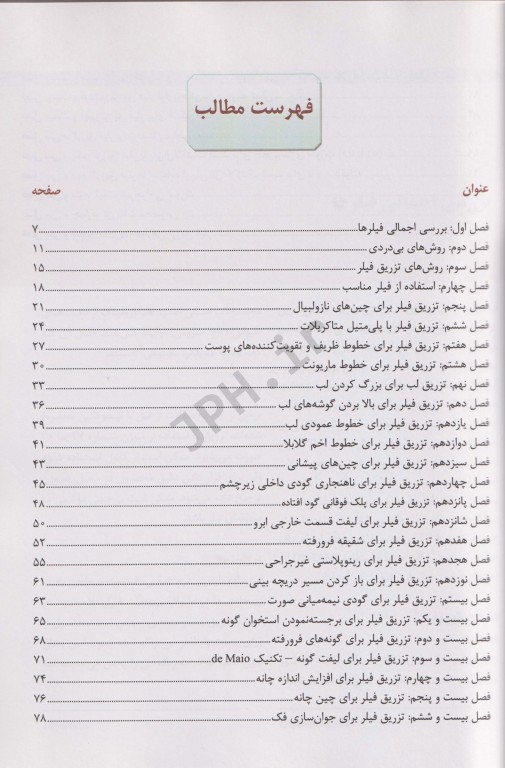 فهرست مطالب
عنوان صفحه
فصل اول: بررسی اجمالی فیلرها ۷
فصل دوم: روش‌های بی‌دردی ۱۱
فصل سوم: روش‌های تزریق فیلر ۱۵
فصل چهارم: استفاده از فیلر مناسب ۱۸
فصل پنجم: تزریق فیلر برای چین‌های نازولبیال ۲۱
فصل ششم: تزریق فیلر با پلی‌متیل متاکریلات ۲۴
فصل هفتم: تزریق فیلر برای خطوط ظریف و تقویت‌کننده‌های پوست ۲۷
فصل هشتم: تزریق فیلر برای خطوط ماریونت ۳۰
فصل نهم: تزریق لب برای بزرگ کردن لب ۳۳
فصل دهم: تزریق فیلر برای بالا بردن گوشه‌های لب ۳۶
فصل یازدهم: تزریق فیلر برای خطوط عمودی لب ۳۹
فصل دوازدهم: تزریق فیلر برای خطوط اخم گلابلا ۴۱
فصل سیزدهم: تزریق فیلر برای چین‌های پیشانی ۴۳
فصل چهاردهم: تزریق فیلر برای ناهنجاری گودی داخلی زیرچشم ۴۵
فصل پانزدهم: تزریق فیلر برای پلک فوقانی گود افتاده ۴۸
فصل شانزدهم: تزریق فیلر برای لیفت قسمت خارجی ابرو ۵۰
فصل هفدهم: تزریق فیلر برای شقیقه فرورفته ۵۲
فصل هجدهم: تزریق فیلر برای رینوپلاستی غیرجراحی ۵۵
فصل نوزدهم: تزریق فیلر برای باز کردن مسیر دریچه بینی ۶۱
فصل بیستم: تزریق فیلر برای گودی نیمه‌میانی صورت ۶۳
فصل بیست و یکم: تزریق فیلر برای برجسته‌نمودن استخوان گونه ۶۵
فصل بیست و دوم: تزریق فیلر برای گونه‌های فرورفته ۶۸
فصل بیست و سوم: تزریق فیلر برای لیفت گونه – تکنیک de Maio ۷۱
فصل بیست و چهارم: تزریق فیلر برای افزایش اندازه چانه ۷۴
فصل بیست و پنجم: تزریق فیلر برای چین چانه ۷۶
فصل بیست و ششم: تزریق فیلر برای جوان‌سازی فک ۷۸
JPH.ir